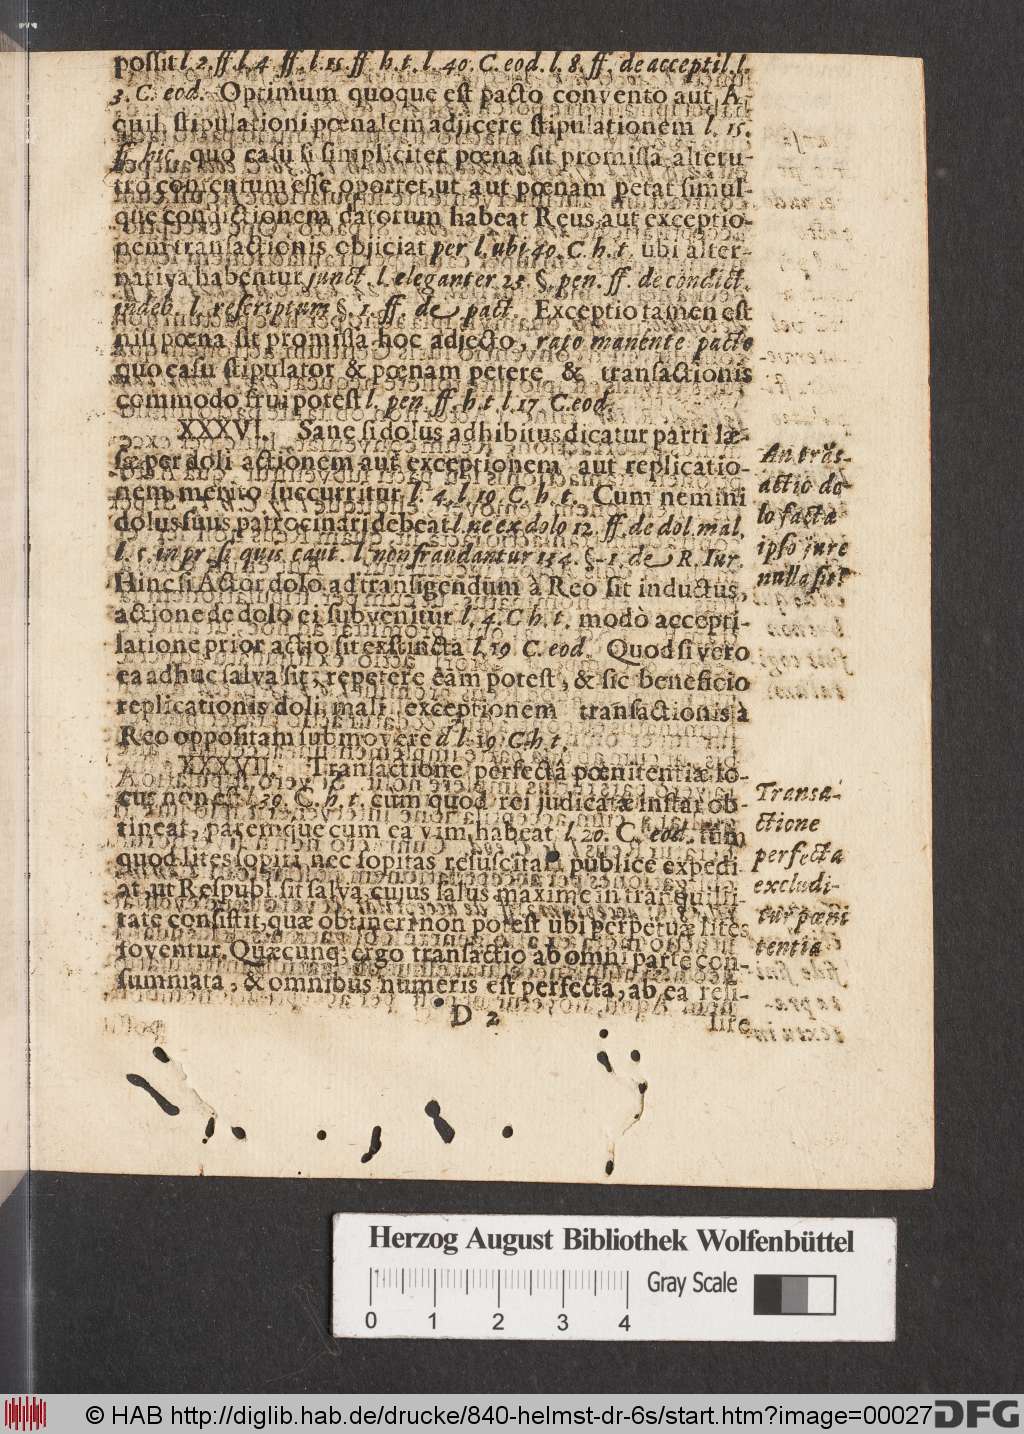 possit l. 2. ff. l. 4 ff. l. 15. ff. h. t. l. 40. C. eod. l. 8. ff. de acceptil. l.
3. C. eod. Optimum quoque est pacto convento aut A-
quil. stipulationi pœnalem adjicere stipulationem l. 15.
ff. hîc. quo casu si simpliciter pœna sit promissa alteru-
tro contentum esse oportet, ut aut pœnam petat simul-
que condictionem datorum habeat Reus aut exceptio-
nem transactionis objiciat per l. ubi 40. C. h. t. ubi alter-
nativa habentur junct. l. eleganter 23 §. pen. ff. de condict.
indeb. l. rescriptum §. 1. ff. de pact. Exceptio tamen est
nisi pœna sit promissa hoc adjecto, rato manente pacto
quo casu stipulator & pœnam petere & transactionis
commodo frui potest l. pen. ff. h. t l. 17 C. eod.
XXXVI. Sane si dolus adhibitus dicatur parti læ-
sæ per doli actionem aut exceptionem aut replicatio-
nem merito succurritur l. 4. l. 19. C. h. t. Cum nemini
dolus suus patrocinari debeat l. ne ex dolo 12. ff. de dol. mal.
l. 1. in pr. si quis caut. l. non fraudantur 134. §. 1. de R. Iur.
Hinc si Actor dolo ad transigendum à Reo sit inductus,
actione de dolo ei subvenitur l. 4. C h. t. modò accepti-
latione prior actio sit exstincta l. 19. C. eod. Quod si vero
ea adhuc salva sit, repetere eam potest, & sic beneficio
replicationis doli mali exceptionem transactionis à
Reo oppositam submovere d l. 19 C. h t.
XXXVII. Transactione perfectâ pœnitentiæ lo-
cus non est l. 39. C. h. t. cum quod rei judicatæ instar ob-
tineat, paremque cum ea vim habeat l. 20. C. eod. tum
quod lites sopiri nec sopitas resuscitari publicè expedi-
at, ut Respubl. sit salva cujus salus maxime in tranquilli-
tate consistit, quæ obtineri non potest ubi perpetuæ lites
foventur. Quæcunq; ergo transactio ab omni parte con-
summata, & omnibus numeris est perfecta, ab ea resi-
D 2
lire
An trās-
actio do-
lo facta
ipso jure
nulla sit?
Transa-
ctione
perfecta
excludi-
tur pœni
tentia
Herzog August Bibliothek Wolfenbüttel
Gray Scale
0 1 2 3 4
© HAB http://diglib.hab.de/drucke/840-helmst-dr-6s/start.htm?image=00027
DFG